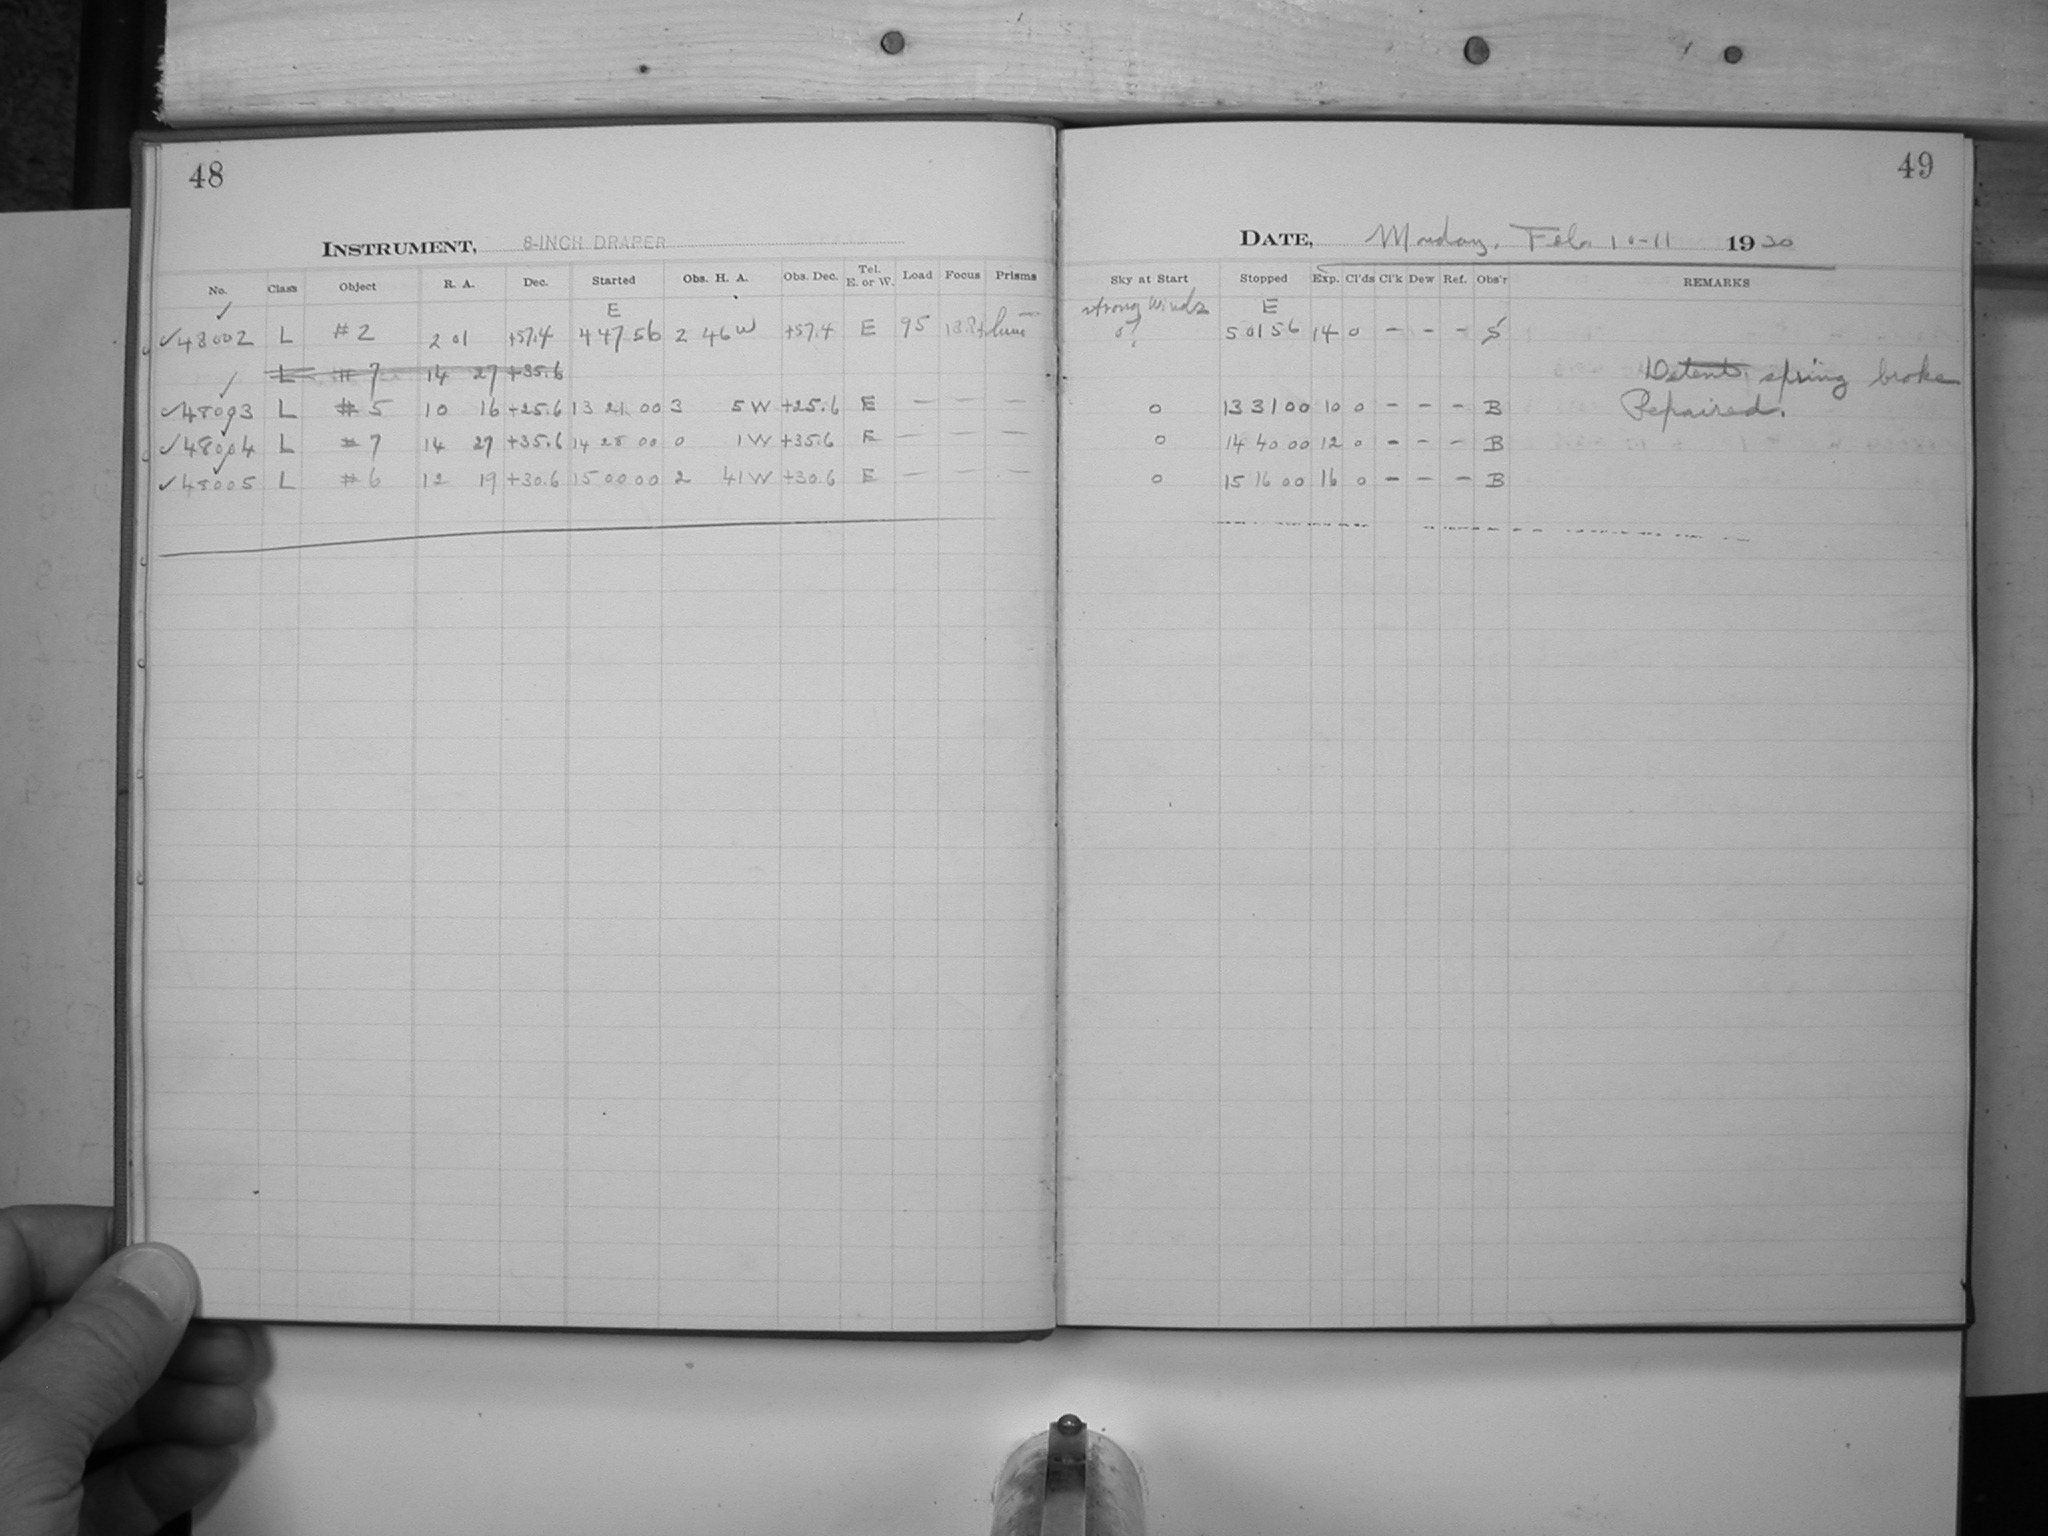 48
INSTRUMENT, 8-INCH DRAPER
No. Class Object R. A. Dec. Started Obs. H. A. Obs. Dec. Tel. E. or W. Load Focus Prisms
E
✓48002 L #2 2 01 +57.4 4 47 56 2 46 W +57.4 E 95
L # 7 14 27 +35.6
✓48003 L # 5 10 16 +25.6 13 21 00 3 5 W +25.6 E — — —
✓48004 L # 7 14 27 +35.6 14 28 00 0 1 W +35.6 E — — —
✓48005 L # 6 12 19 +30.6 15 00 00 2 41 W +30.6 E — — —
49
DATE, Monday, Feb. 10-11 1930
Sky at Start Stopped Exp. Cl'ds Cl'k Dew Ref. Obs'r REMARKS
strong winds E
0? 5 01 56 14 0 — — — S
Detent spring broke
0 13 31 00 10 0 — — — B Repaired.
0 14 40 00 12 0 — — — B
0 15 16 00 16 0 — — — B